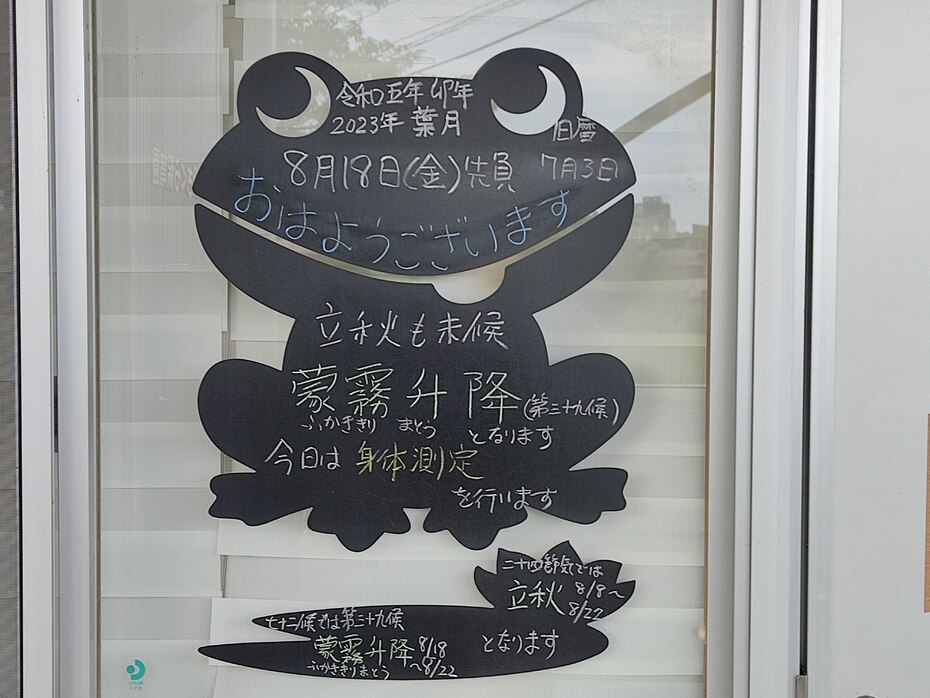 令和五年 卯年
2023年 葉月
旧暦
8月18日(金)先負 7月3日
おはようございます
立秋も末候
蒙霧升降(第三十九候)
ふかききり まとう となります
今日は 身体測定
を行います
二十四節気では
立秋 8/8〜
8/22
七十二候では第三十九候
蒙霧升降 8/18 となります
ふかききりまとう 〜8/22